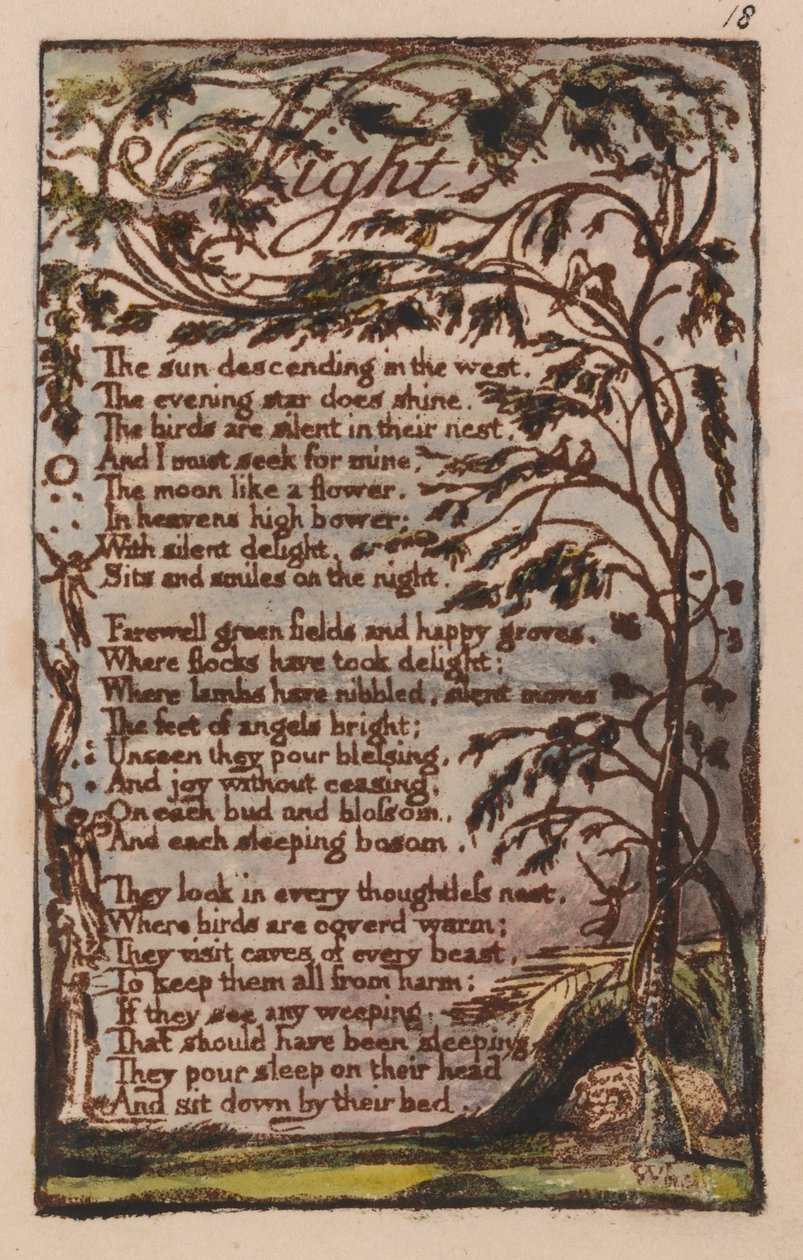 18
Night
The sun descending in the west.
The evening star does shine.
The birds are silent in their nest,
And I must seek for mine,
The moon like a flower,
In heavens high bower;
With silent delight,
Sits and smiles on the night.
Farewell green fields and happy groves,
Where flocks have took delight;
Where lambs have nibbled, silent moves
The feet of angels bright;
Unseen they pour blessing,
And joy without ceasing,
On each bud and blossom,
And each sleeping bosom.
They look in every thoughtless nest,
Where birds are coverd warm;
They visit caves of every beast,
To keep them all from harm;
If they see any weeping,
That should have been sleeping
They pour sleep on their head
And sit down by their bed.